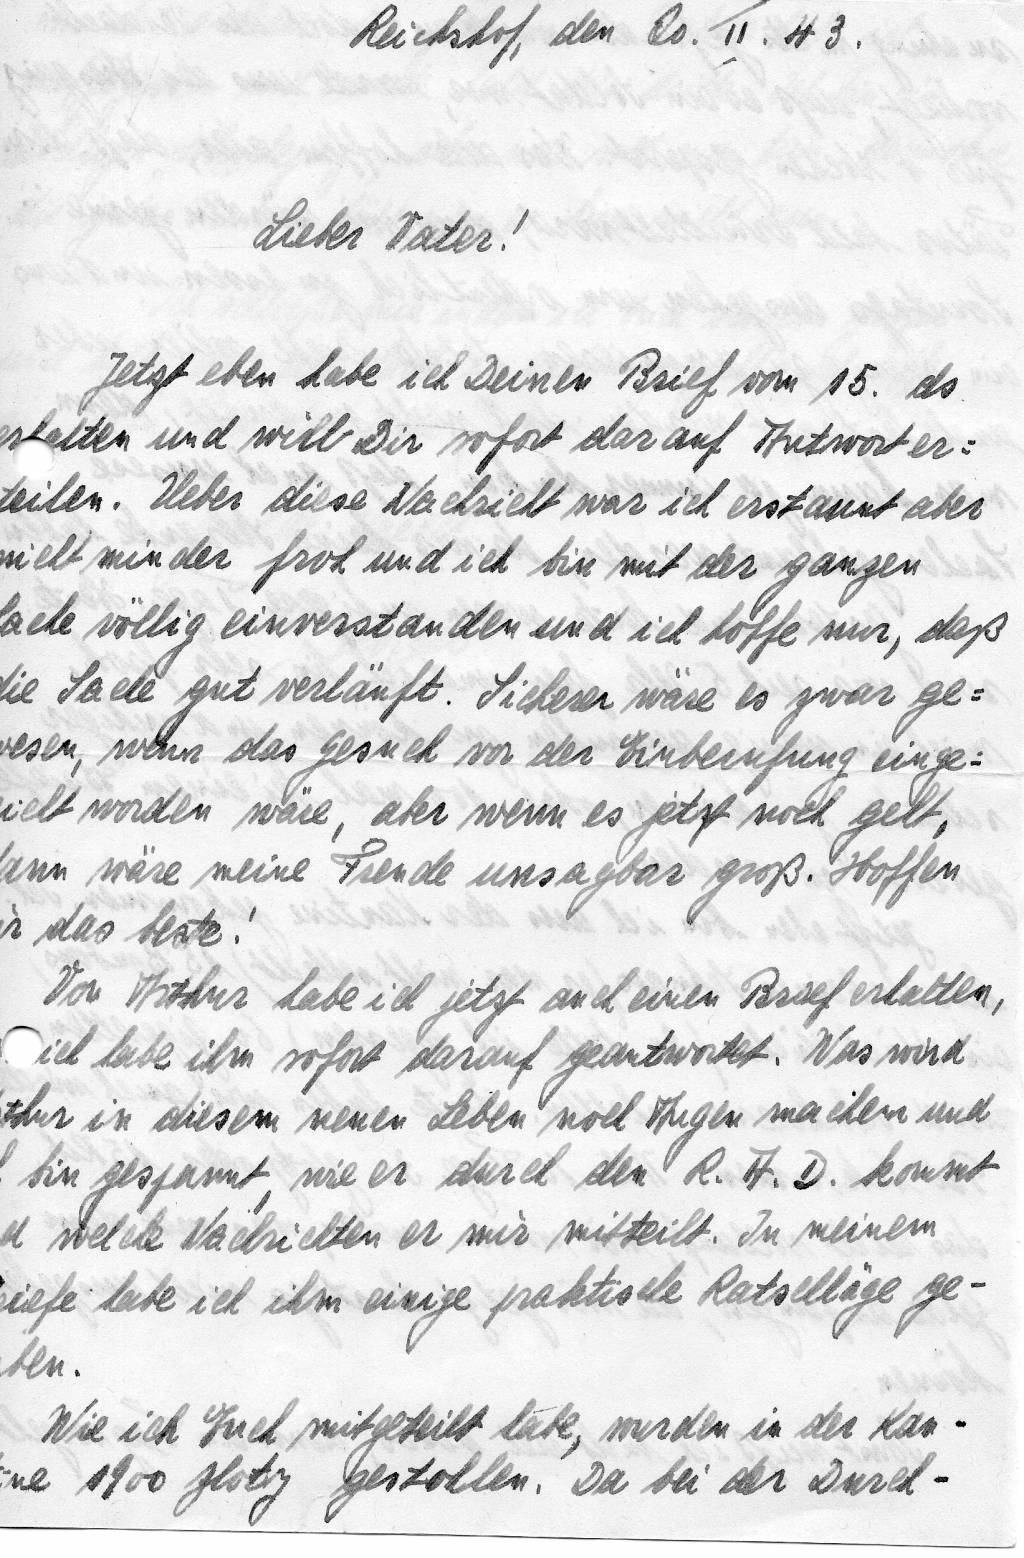 Reichshof, den 20. II. 43.
Lieber Vater!
Jetzt eben habe ich Deinen Brief vom 15. ds
erhalten und will Dir sofort darauf Antwort er=
teilen. Ueber diese Nachricht war ich erstaunt aber
nicht minder froh und ich bin mit der ganzen
Sache völlig einverstanden und ich hoffe nur, daß
die Sache gut verläuft. Sicherer wäre es zwar ge=
wesen, wenn das Gesuch vor der Einberufung einge=
reicht worden wäre, aber wenn es jetzt noch geht,
dann wäre meine Freude unsagbar groß. Hoffen
wir das beste!
Von Arthur habe ich jetzt auch einen Brief erhalten,
ich habe ihm sofort darauf geantwortet. Was wird
Arthur in diesem neuen Leben noch Augen machen und
ich bin gespannt, wie er durch den R. A. D. kommt
und welche Nachrichten er mir mitteilt. In meinem
Briefe habe ich ihm einige praktische Ratschläge ge-
ben.
Wie ich Euch mitgeteilt habe, wurden in der Kan-
tine 1900 Zloty gestohlen. Da bei der Durch-